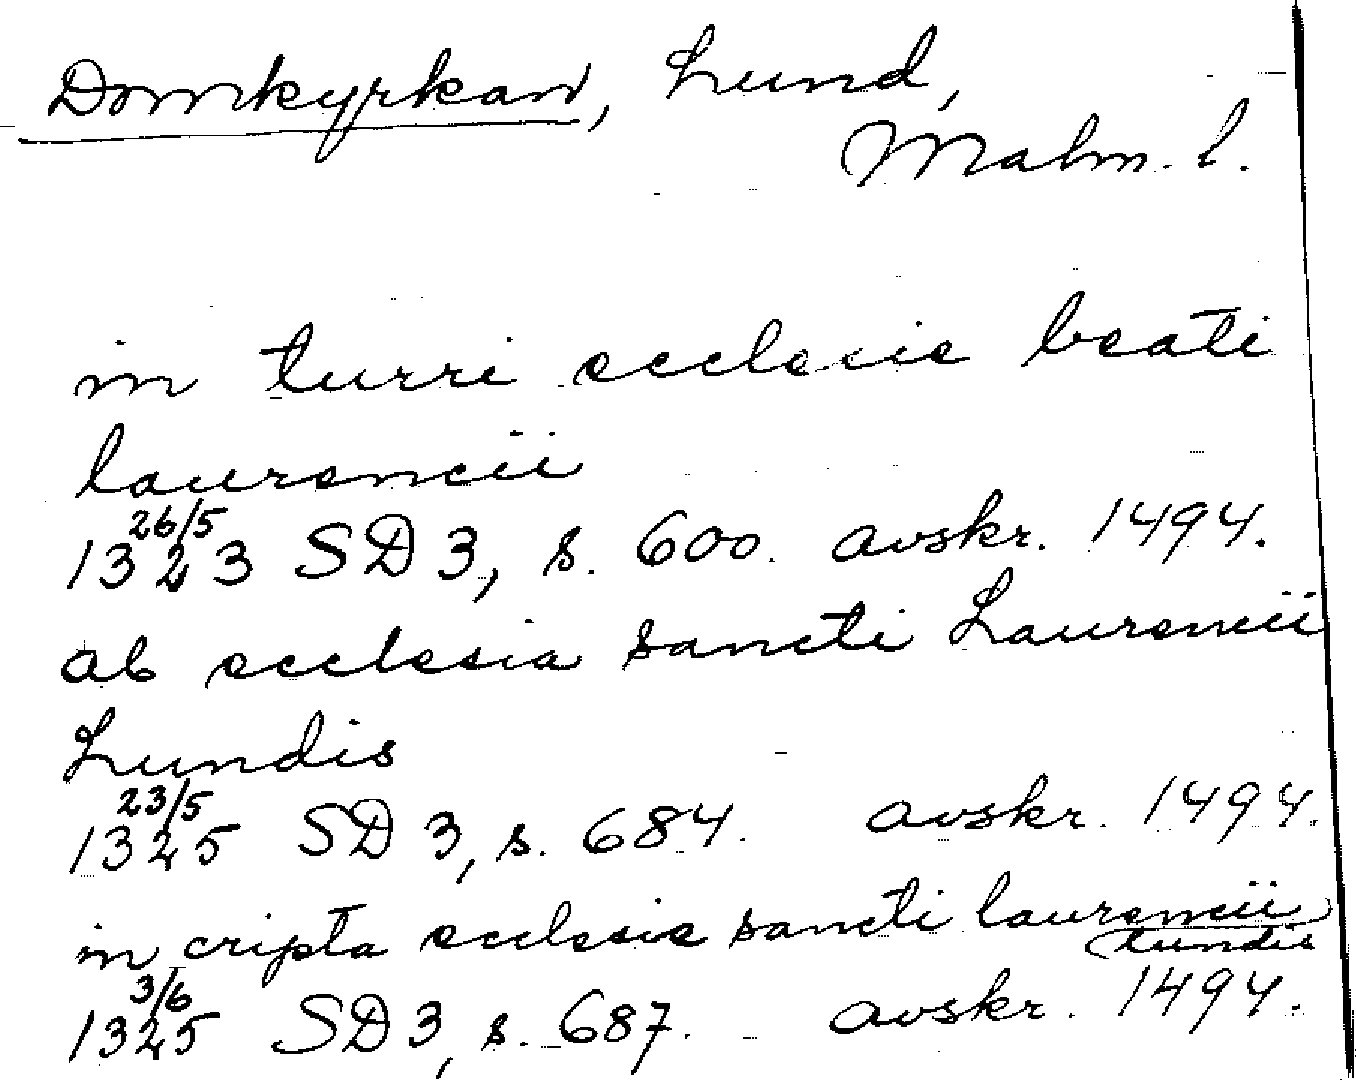 Domkyrkan, Lund,
Malm. l.
in turri ecclesie beati
laurencii
26/5
1323 SD 3, s. 600. avskr. 1494.
ab ecclesia sancti Laurencii
Lundis
23/5
1325 SD 3, s. 684. avskr. 1494.
in cripta ecclesie sancti laurencii
lundis
3/6
1325 SD 3, s. 687. avskr. 1494.